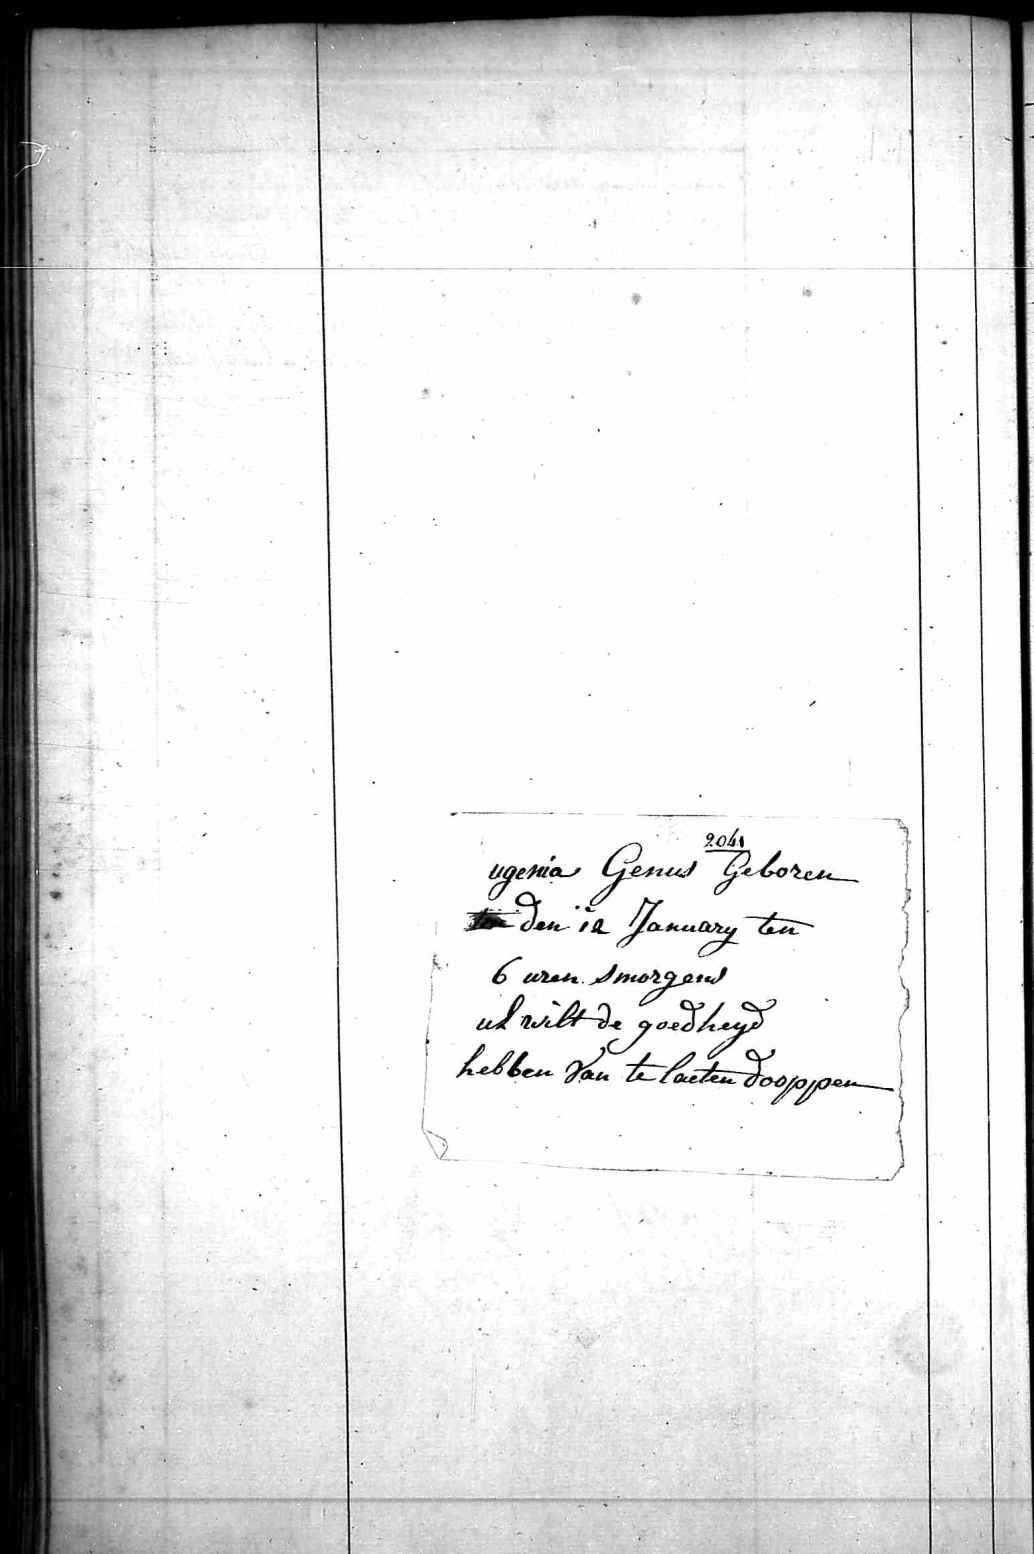 2041
ugenia Genus Geboren
den 12 January ten
6 uren smorgens
ul wilt de goedheyd
hebben van te laeten dooppen